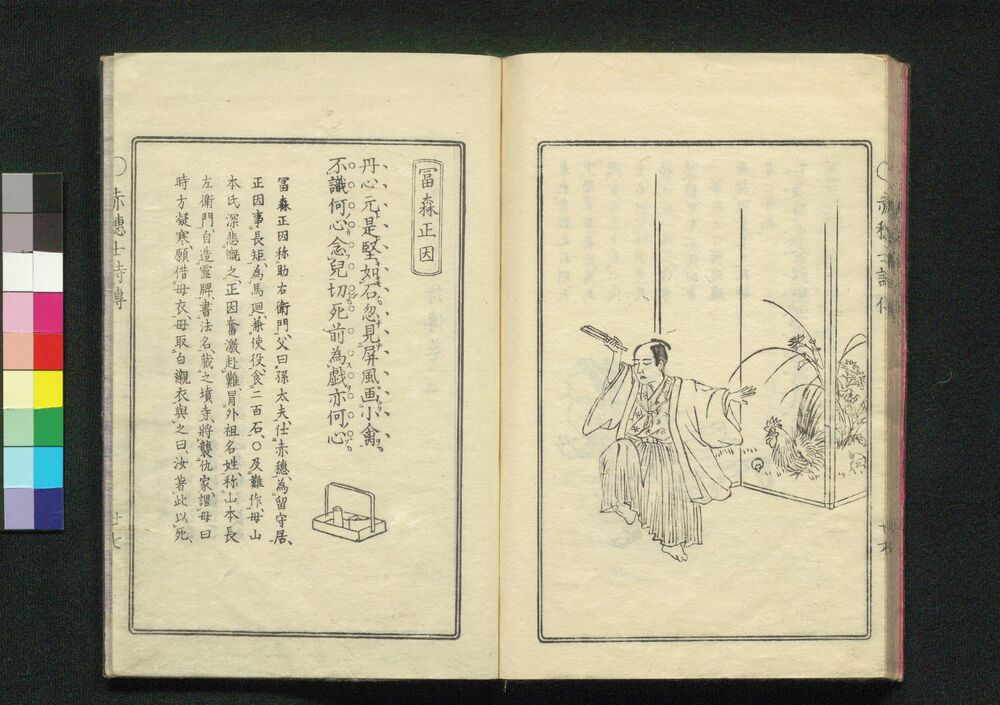 冨森正因
丹心元是堅如石忽見屏風画小禽
不識何心念兒切死前為戯亦何心
冨森正因称助右衛門、父曰孫太夫、仕赤穗、為留守居、
正因事長矩、為馬廻、兼使役、食二百石、〇及難作、母山
本氏深悲慨之、正因奮激赴難、冐外祖名姓、称山本長
左衛門、自造靈牌、書法名、藏之墳寺、將襲仇家、謂母曰
時方凝寒、願借母衣、母取白襯衣與之曰、汝著此以死、
〇赤穗士詩傳
廿七